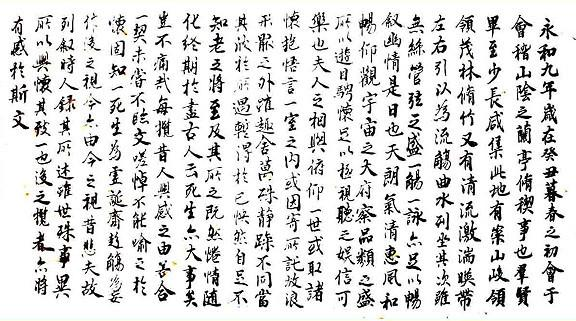 永和九年歲在癸丑暮春之初會于
會稽山陰之蘭亭脩稧事也羣賢
畢至少長咸集此地有崇山峻領
領茂林脩竹又有清流激湍暎帶
左右引以為流觴曲水列坐其次雖
無絲管弦之盛一觴一詠亦足以暢
叙幽情是日也天朗氣清惠風和
暢仰觀宇宙之大俯察品類之盛
所以遊目騁懷足以極視聽之娛信可
樂也夫人之相與俯仰一世或取諸
懷抱悟言一室之內或因寄所託放浪
形骸之外雖趣舍萬殊静躁不同當
其欣於所遇輙得於己怏然自足不
知老之將至及其所之既然惓情隨
化終期於盡古人云死生亦大事矣
豈不痛哉每攬昔人興感之由若合
一契未嘗不臨文嗟悼不能喻之於
懷固知一死生為虛誕齊彭殤為妄
作後之視今亦由今之視昔悲夫故
列叙時人録其所述雖世殊事異
所以興懷其致一也後之攬者亦將
有感於斯文